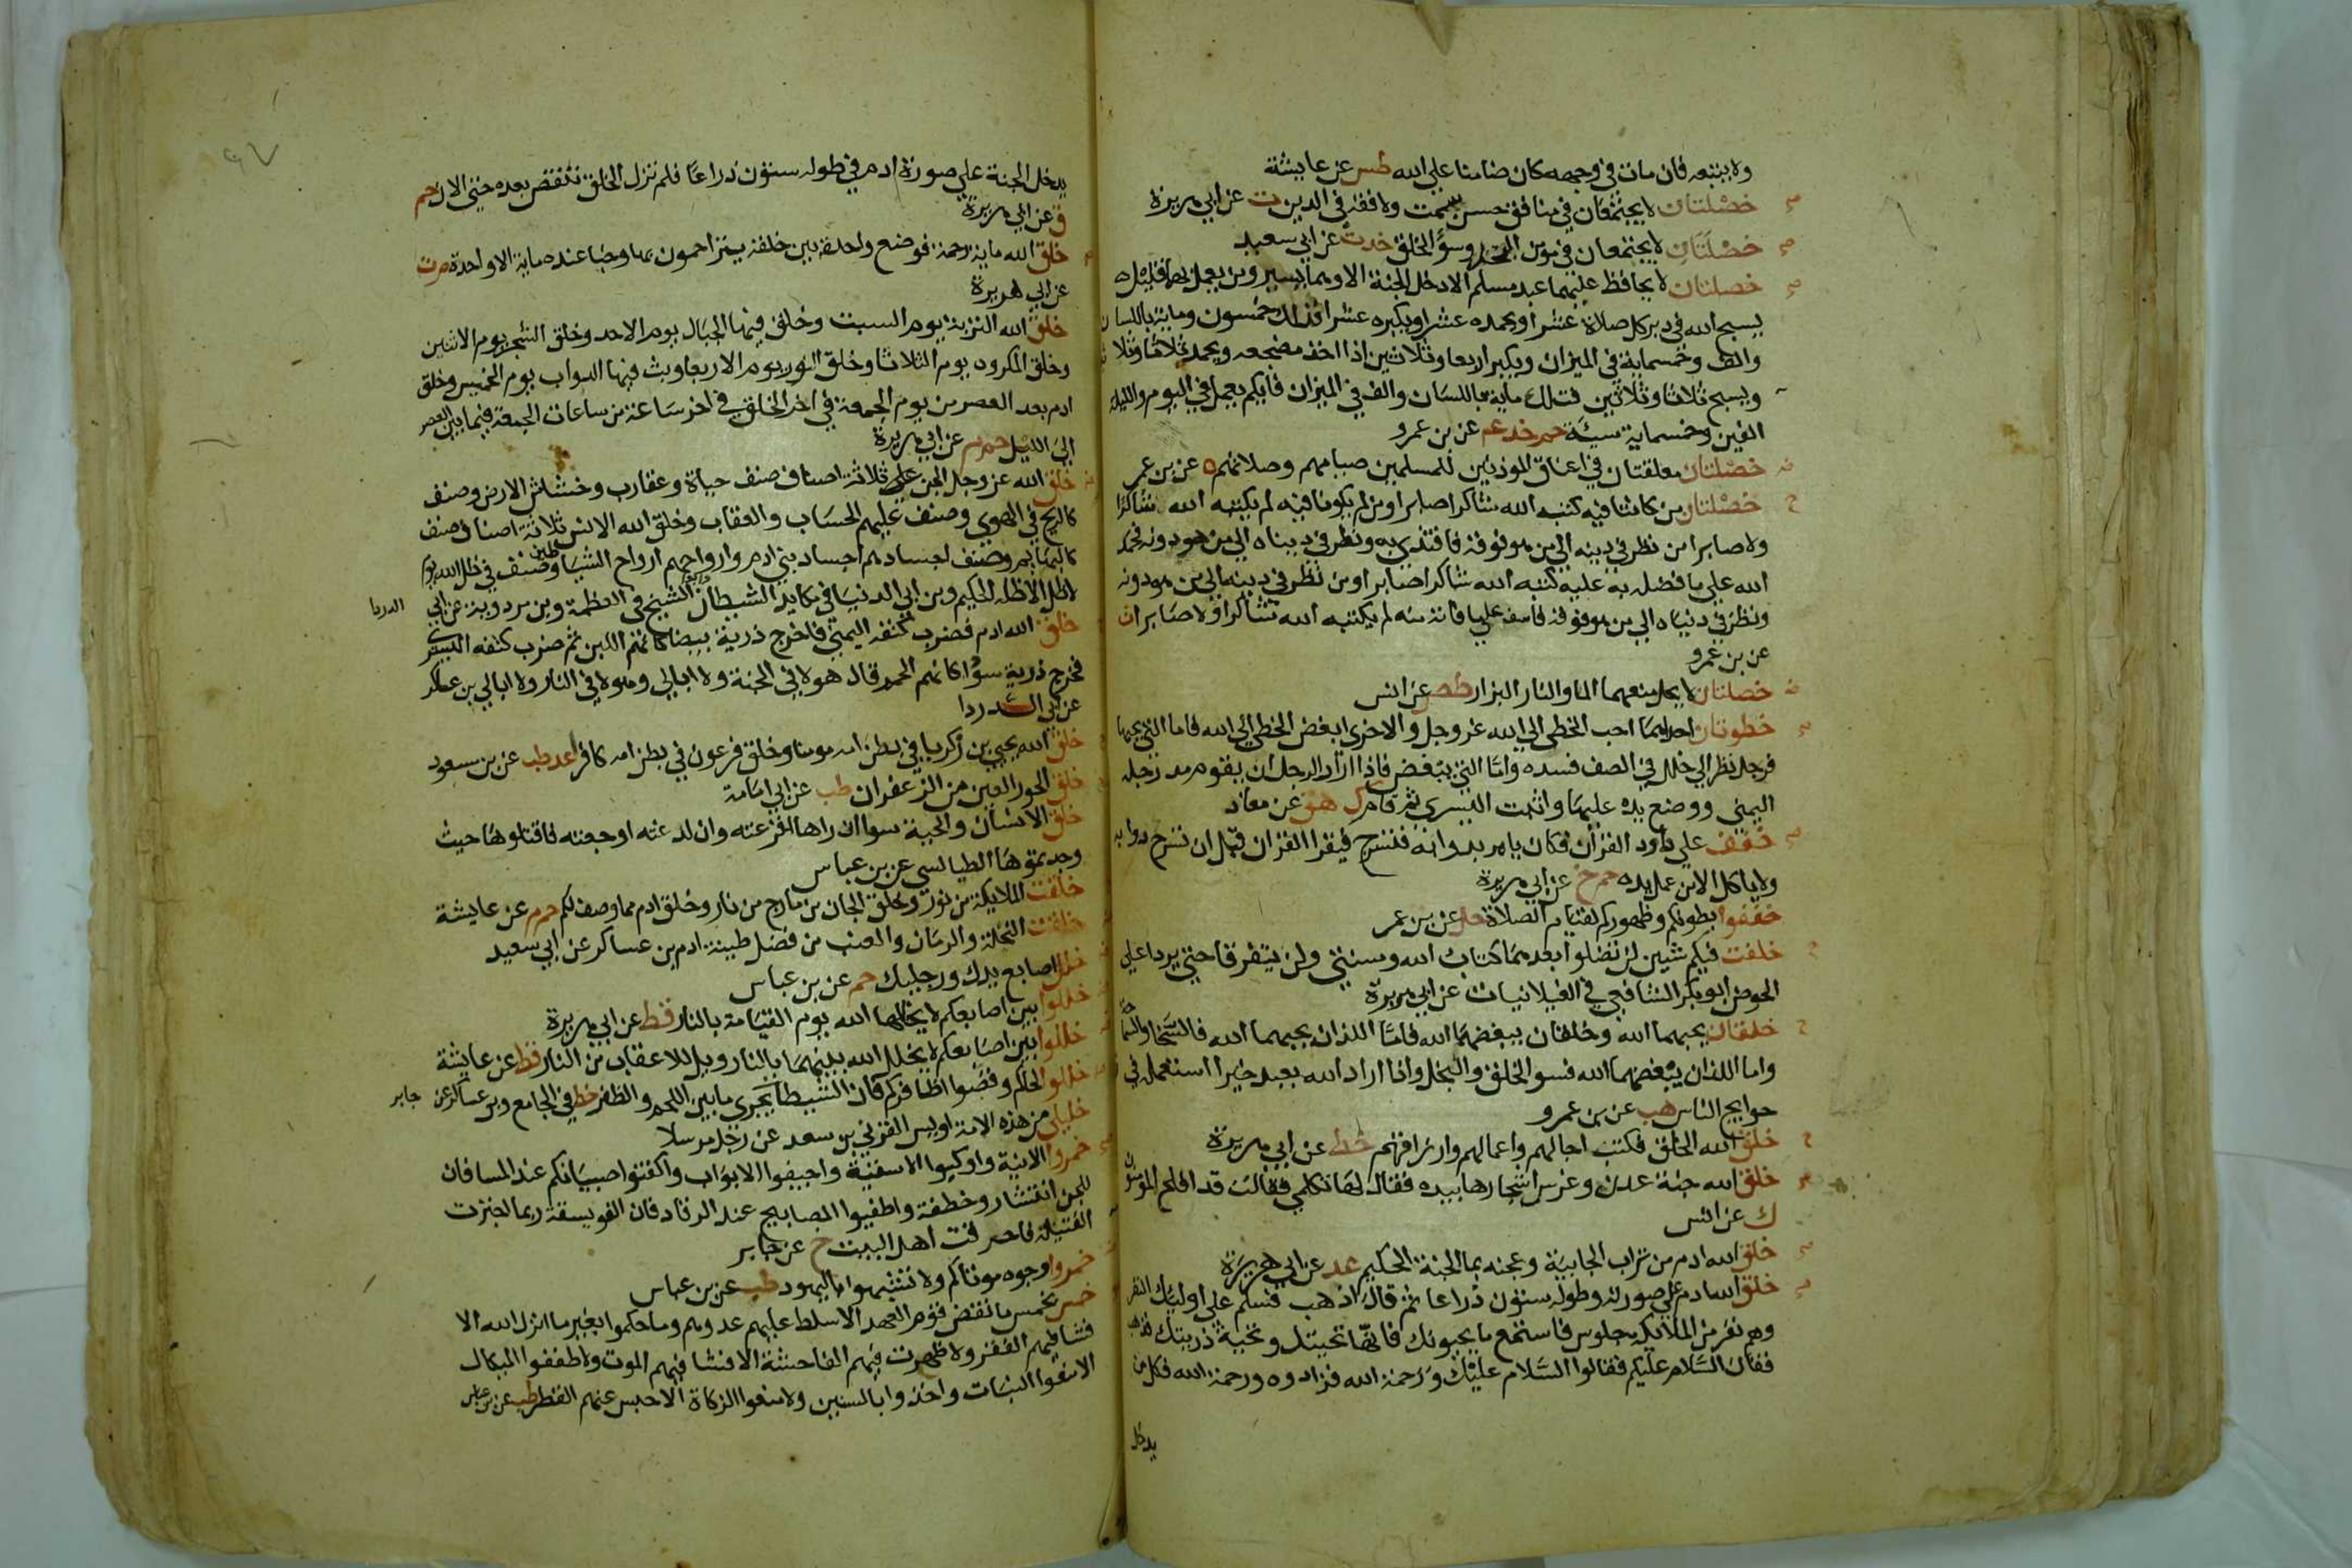 ولا يتبعه فان مات في وجهه كان ضامنا على الله طس عن عايشة
خصلتان لا يجتمعان في منافق حسن سمت ولا فقه في الدين ت عن ابي هريرة
خصلتان لا يجتمعان في مومن البخل وسؤ الخلق خدت عن ابي سعيد
خصلتان لا يحافظ عليهما عبد مسلم الا دخل الجنة الا وهما يسير ومن يعمل بهما قليل
يسبح الله في دبر كل صلاة عشرا ويحمده عشرا ويكبره عشرا فذلك خمسون وماية باللسان
والف وخمسماية في الميزان ويكبر اربعا وثلاثين اذا اخذ مضجعه ويحمد ثلاثا وثلا
ويسبح ثلاثا وثلاثين فتلك ماية باللسان والف في الميزان فايكم يعمل في اليوم والليلة
الفين وخمسماية سيئة حم خد عم عن بن عمرو
خصلتان معلقتان في اعناق الموذنين للمسلمين صيامهم وصلاتهم ه عن بن عمر
خصلتان من كانتا فيه كتبه الله شاكرا صابرا ومن لم يكونا فيه لم يكتبه الله شاكرا
ولا صابرا من نظر في دينه الى من هو فوقه فاقتدى به ونظر في دنياه الى من هو دونه فحمد
الله على ما فضله به عليه كتبه الله شاكرا صابرا ومن نظر في دينه الى من هو دونه
ونظر في دنياه الى من هو فوقه فاسف على ما فاته منه لم يكتبه الله شاكرا ولا صابرا ت
عن بن عمرو
خصلتان لا يحل منعهما الما والنار البزار طص عن انس
خطوتان احداهما احب الخطى الى الله عز وجل والاخرى ابغض الخطى الى الله فاما التي يحبها
فرجل نظر الى خلل في الصف فسده واما التي يبغض فاذا اراد الرجل ان يقوم مد رجله
اليمنى ووضع يده عليها واثبت اليسرى ثم قام ك هق عن معاذ
خفف على داود القران فكان يامر بدوابه فتسرج فيقرا القران قبل ان تسرج دوابه
ولا ياكل الا من عمل يده حم خ عن ابي هريرة
خففوا بطونكم وظهوركم لقيام الصلاة حل عن بن عمر
خلفت فيكم شيين لن تضلوا بعدهما كتاب الله وسنتي ولن يتفرقا حتى يردا على
الحوض ابو بكر الشافعي في الغيلانيات عن ابي هريرة
خلقان يحبهما الله وخلقان يبغضهما الله فاما اللذان يحبهما الله فالسخا والسماحة
واما اللذان يبغضهما الله فسو الخلق والبخل واذا اراد الله بعبد خيرا استعمله في
حوايج الناس هب عن بن عمرو
خلق الله الخلق فكتب اجالهم واعمالهم وارزاقهم خط عن ابي هريرة
خلق الله جنة عدن وغرس اشجارها بيده فقال لها تكلمي فقالت قد افلح المؤمنون
ك عن انس
خلق الله ادم من تراب الجابية وعجنه بما الجنة الحكيم عد عن ابي هريرة
خلق الله ادم على صورته وطوله ستون ذراعا ثم قال اذهب فسلم على اوليك النفر
وهم نفر من الملايكة جلوس فاستمع ما يحيونك فانها تحيتك وتحية ذريتك فذهب
فقال السلام عليكم فقالوا السلام عليك ورحمة الله فزادوه ورحمة الله فكل من
يدخل
يدخل الجنة على صورة ادم في طوله ستون ذراعا فلم تزل الخلق تنقص بعده حتى الان حم
ق عن ابي هريرة
خلق الله ماية رحمة فوضع واحدة بين خلقه يتراحمون بها وخبا عنده ماية الا واحدة م ت
عن ابي هريرة
خلق الله التربة يوم السبت وخلق فيها الجبال يوم الاحد وخلق الشجر يوم الاثنين
وخلق المكروه يوم الثلاثا وخلق النور يوم الاربعا وبث فيها الدواب يوم الخميس وخلق
ادم بعد العصر من يوم الجمعة في اخر الخلق في اخر ساعة من ساعات الجمعة فيما بين العصر
الى الليل حم م عن ابي هريرة
خلق الله عز وجل الجن على ثلاثة اصناف صنف حياة وعقارب وخشاش الارض وصنف
كالريح في الهوى وصنف عليهم الحساب والعقاب وخلق الله الانس ثلاثة اصناف صنف
كالبهايم وصنف اجسادهم اجساد بني ادم وارواحهم ارواح الشياطين وصنف في ظل الله يوم
لا ظل الا ظله الحكيم وبن ابي الدنيا في مكايد الشيطان وابو الشيخ في العظمة وبن مردوية عن ابي الدردا
خلق الله ادم فضرب كتفه اليمنى فاخرج ذرية بيضا كانهم اللبن ثم ضرب كتفه اليسرى
فخرج ذرية سودا كانهم الحمم قال هولا في الجنة ولا ابالي وهولا في النار ولا ابالي بن عساكر
عن ابي الدردا
خلق الله يحيى بن زكريا في بطن امه مومنا وخلق فرعون في بطن امه كافرا عد طب عن بن مسعود
خلق الحور العين من الزعفران طب عن ابي امامة
خلق الانسان والحية سوا ان راها افزعته وان لدغته اوجعته فاقتلوها حيث
وجدتموها الطيالسي عن بن عباس
خلقت الملايكة من نور وخلق الجان من مارج من نار وخلق ادم مما وصف لكم حم م عن عايشة
خلقت النخلة والرمان والعنب من فضل طينة ادم بن عساكر عن ابي سعيد
خلل اصابع يديك ورجليك حم عن بن عباس
خللوا بين اصابعكم لا يخللها الله يوم القيامة بالنار قط عن ابي هريرة
خللوا بين اصابعكم لا يخلل الله بينهما بالنار ويل للاعقاب من النار قط عن عايشة
خللوا لحاكم وقصوا اظافركم فان الشيطان يجري ما بين اللحم والظفر خط في الجامع وبن عساكر عن جابر
خليلي من هذه الامة اويس القرني بن سعد عن رجل مرسلا
خمروا الانية واوكيوا الاسقية واجيفوا الابواب واكفتوا صبيانكم عند المسا فان
للجن انتشار وخطفة واطفيوا المصابيح عند الرقاد فان الفويسقة ربما اجترت
الفتيلة فاحرقت اهل البيت خ عن جابر
خمروا وجوه موتاكم ولا تشبهوا باليهود طب عن بن عباس
خمس بخمس ما نقض قوم العهد الا سلط عليهم عدوهم وما حكموا بغير ما انزل الله الا
فشا فيهم الفقر ولا ظهرت فيهم الفاحشة الا فشا فيهم الموت ولا طففوا المكيال
الا منعوا النبات واخذوا بالسنين ولا منعوا الزكاة الا حبس عنهم القطر طب عن بن عباس